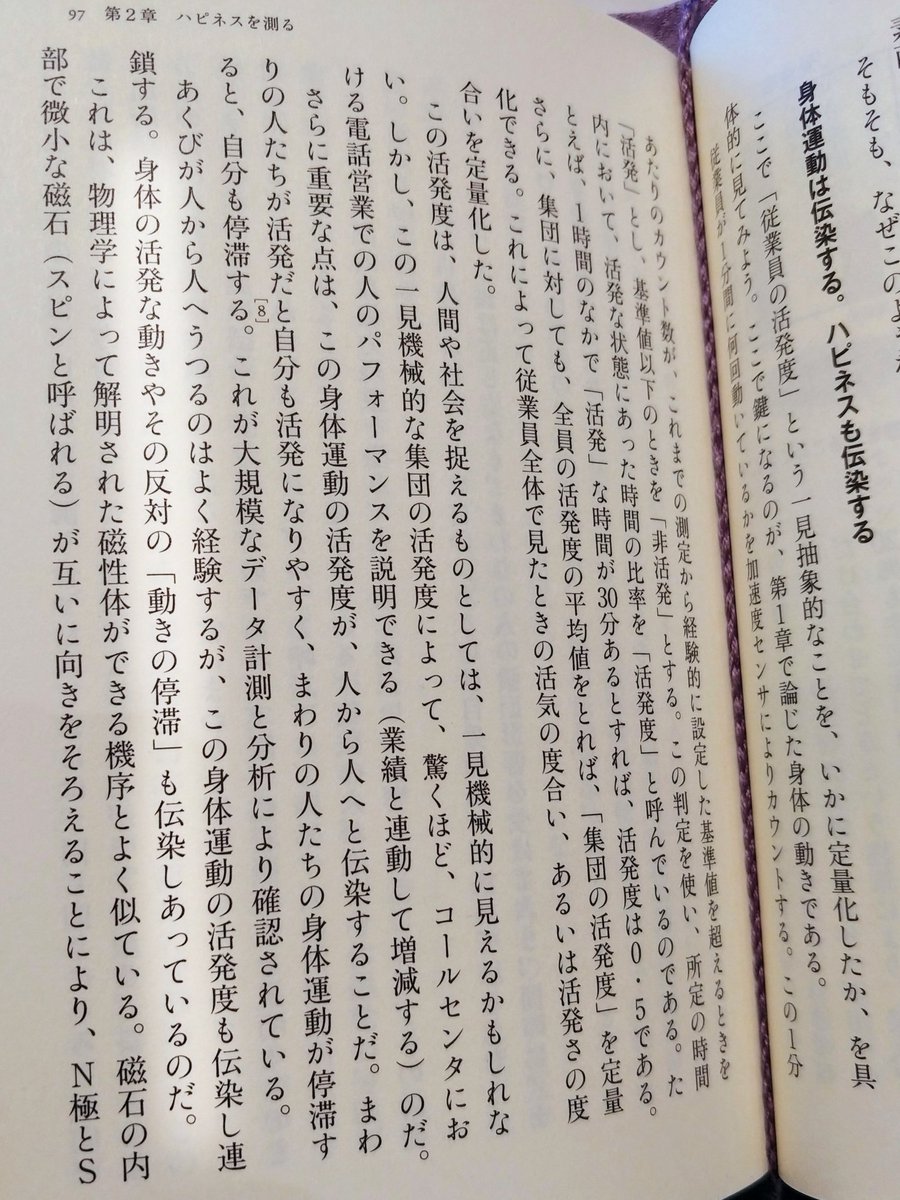 97 第2章 ハピネスを測る
そもそも、なぜこのよ
身体運動は伝染する。ハピネスも伝染する
ここで「従業員の活発度」という一見抽象的なことを、いかに定量化したか、を具
体的に見てみよう。ここで鍵になるのが、第1章で論じた身体の動きである。
従業員が1分間に何回動いているかを加速度センサによりカウントする。この1分
あたりのカウント数が、これまでの測定から経験的に設定した基準値を超えるときを
「活発」とし、基準値以下のときを「非活発」とする。この判定を使い、所定の時間
内において、活発な状態にあった時間の比率を「活発度」と呼んでいるのである。た
とえば、1時間のなかで「活発」な時間が30分あるとすれば、活発度は0・5である。
さらに、集団に対しても、全員の活発度の平均値をとれば、「集団の活発度」を定量
化できる。これによって従業員全体で見たときの活気の度合い、あるいは活発さの度
合いを定量化した。
この活発度は、人間や社会を捉えるものとしては、一見機械的に見えるかもしれな
い。しかし、この一見機械的な集団の活発度によって、驚くほど、コールセンタにお
ける電話営業での人のパフォーマンスを説明できる（業績と連動して増減する）のだ。
さらに重要な点は、この身体運動の活発度が、人から人へと伝染することだ。まわ
りの人たちが活発だと自分も活発になりやすく、まわりの人たちの身体運動が停滞す
ると、自分も停滞する[8]。これが大規模なデータ計測と分析により確認されている。
あくびが人から人へうつるのはよく経験するが、この身体運動の活発度も伝染し連
鎖する。身体の活発な動きやその反対の「動きの停滞」も伝染しあっているのだ。
これは、物理学によって解明された磁性体ができる機序とよく似ている。磁石の内
部で微小な磁石（スピンと呼ばれる）が互いに向きをそろえることにより、N極とS